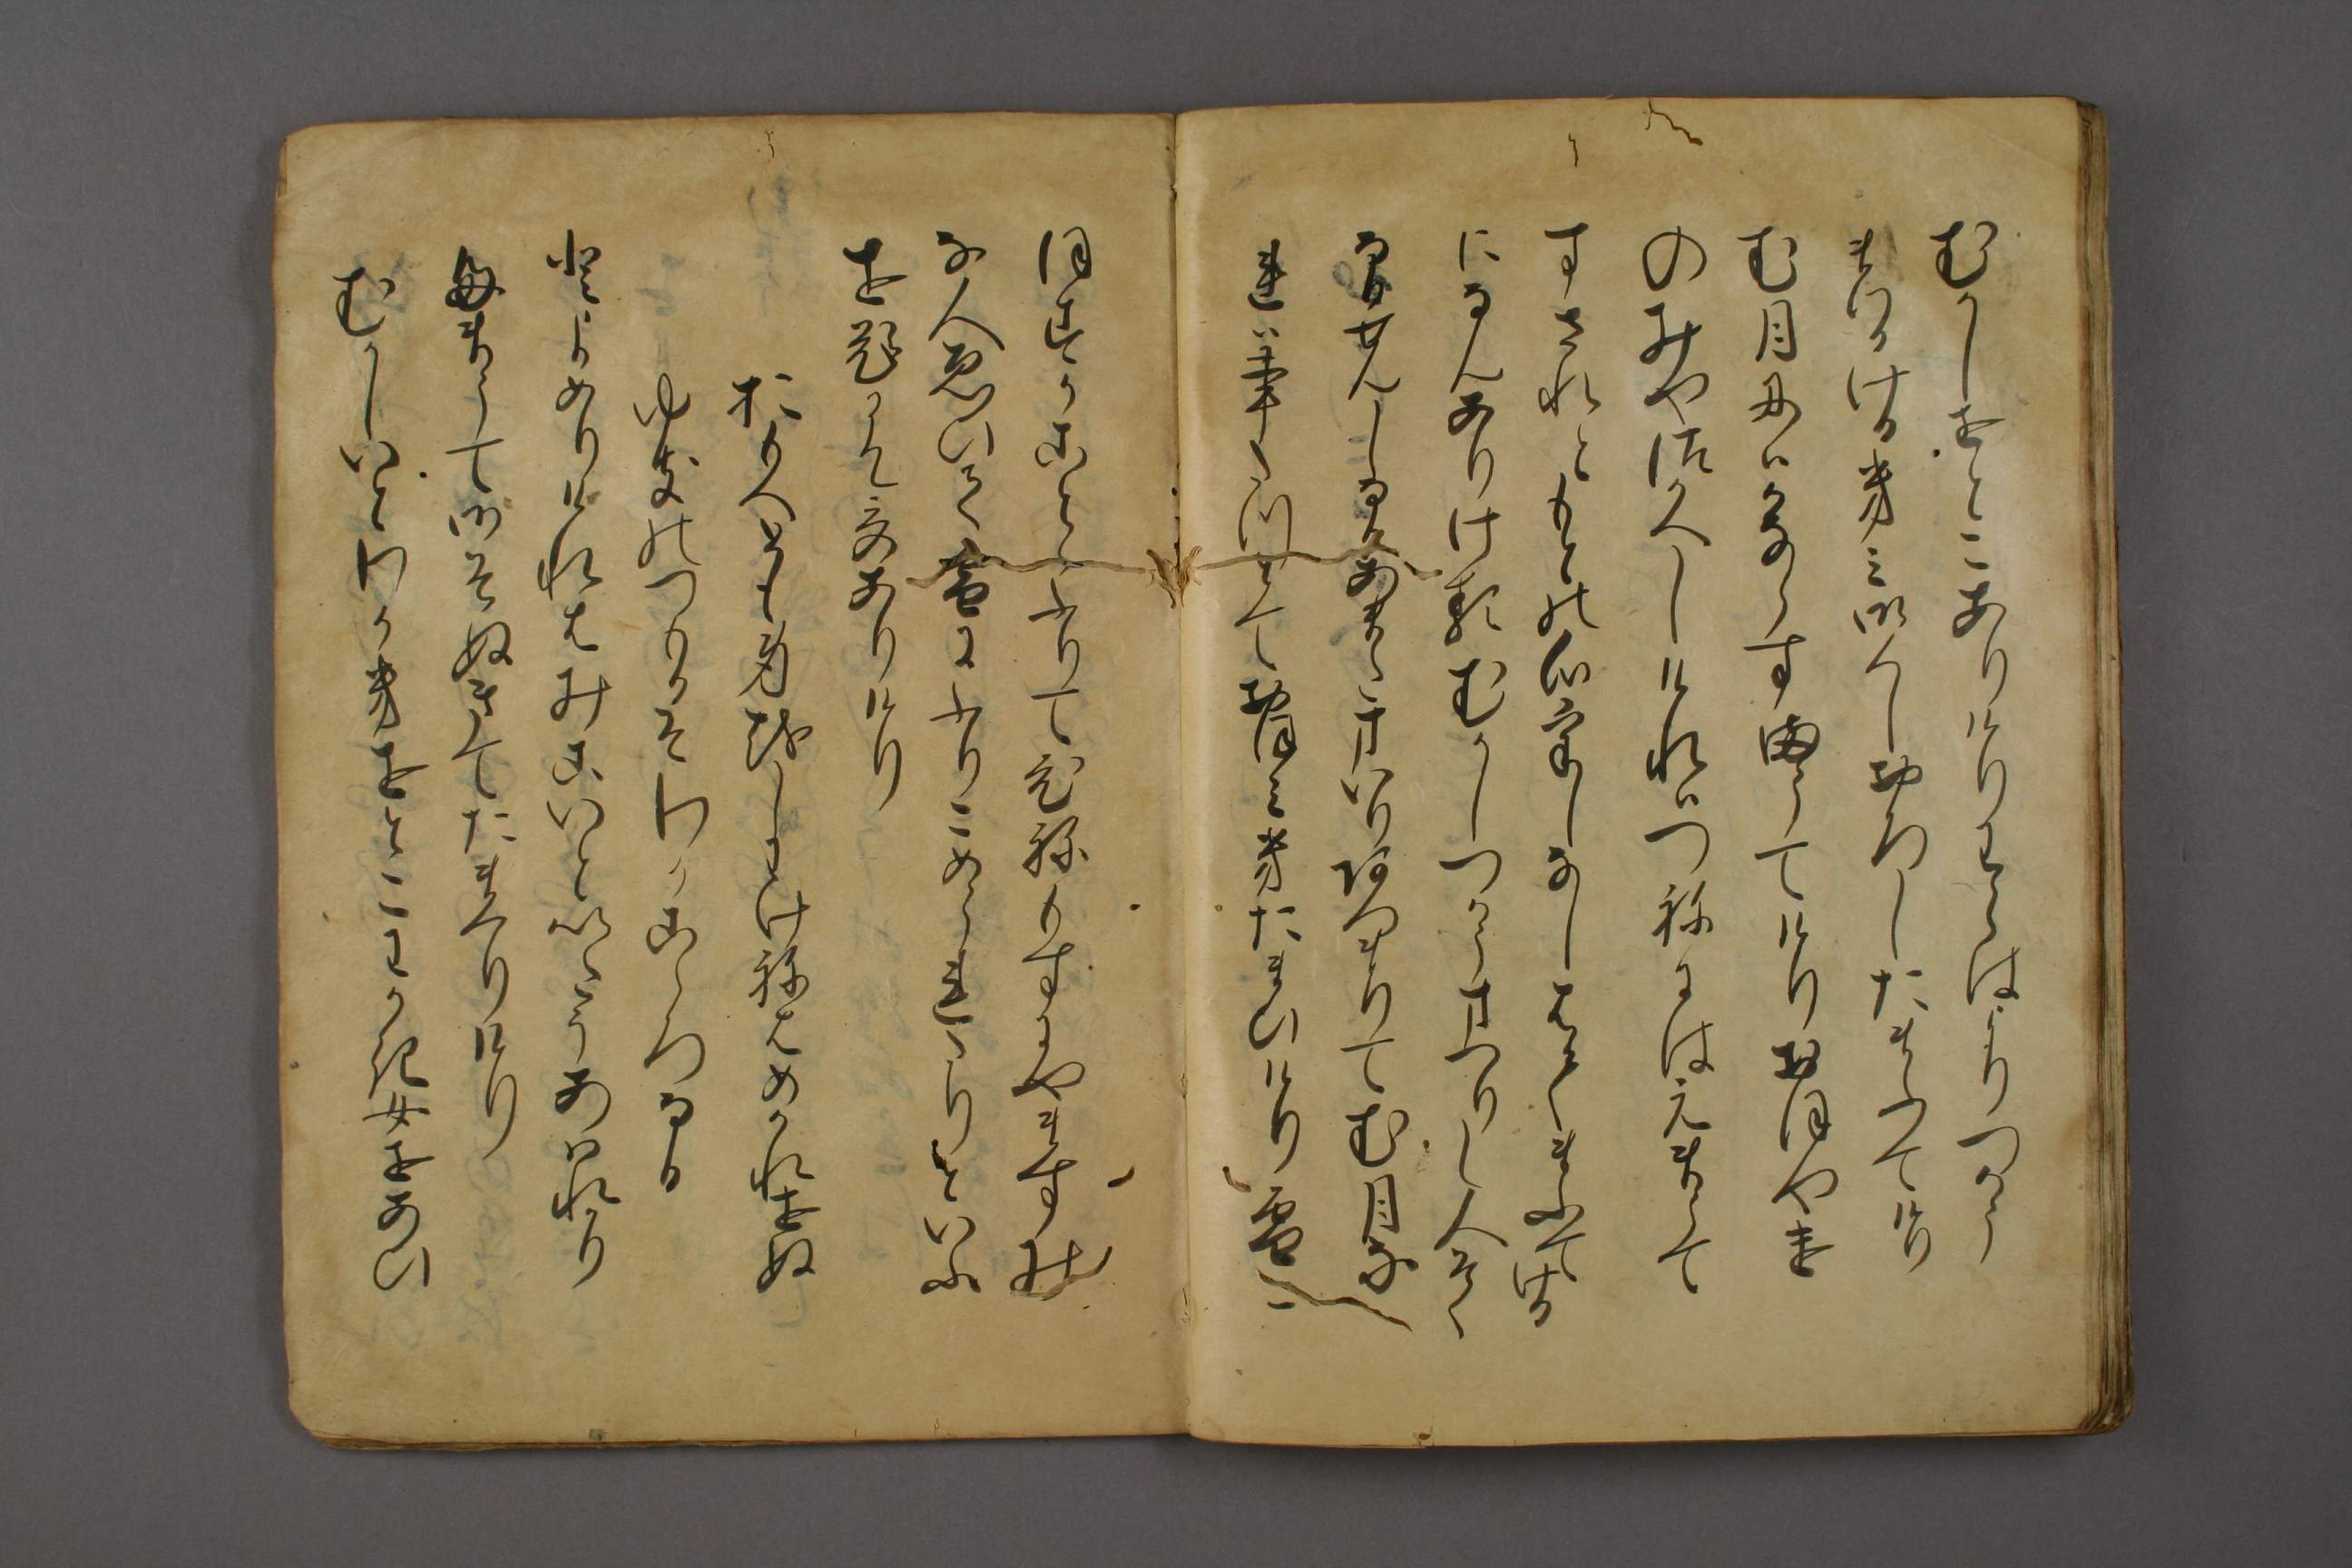 むかしをとこありけりわらはよりつかう
まつりけるきみ御くしおろしたまふてけり
む月にはかならすまうてけりおほやけ
のみやつかへしけれはつねにはえまうて
すされともとの心うしなはてまふてける
になんありけるむかしつかうまつりし人そく
なるせんしなるあまたまいりあつまりてむ月な
れは事たつとておほみきたまひけり雪こ
ほすかことふりてひねもすにやますみ
な人ゑひて雪にふりこめられたりといふ
を題にて哥ありけり
おもへとも身をしわけねはめかれせぬ
ゆきのつもるそわかこゝろなる
とよめりけれはみこいといたうあはれかり
たまうて御そぬきてたまへりけり
むかしいとわかきをとこわかき女をあひ